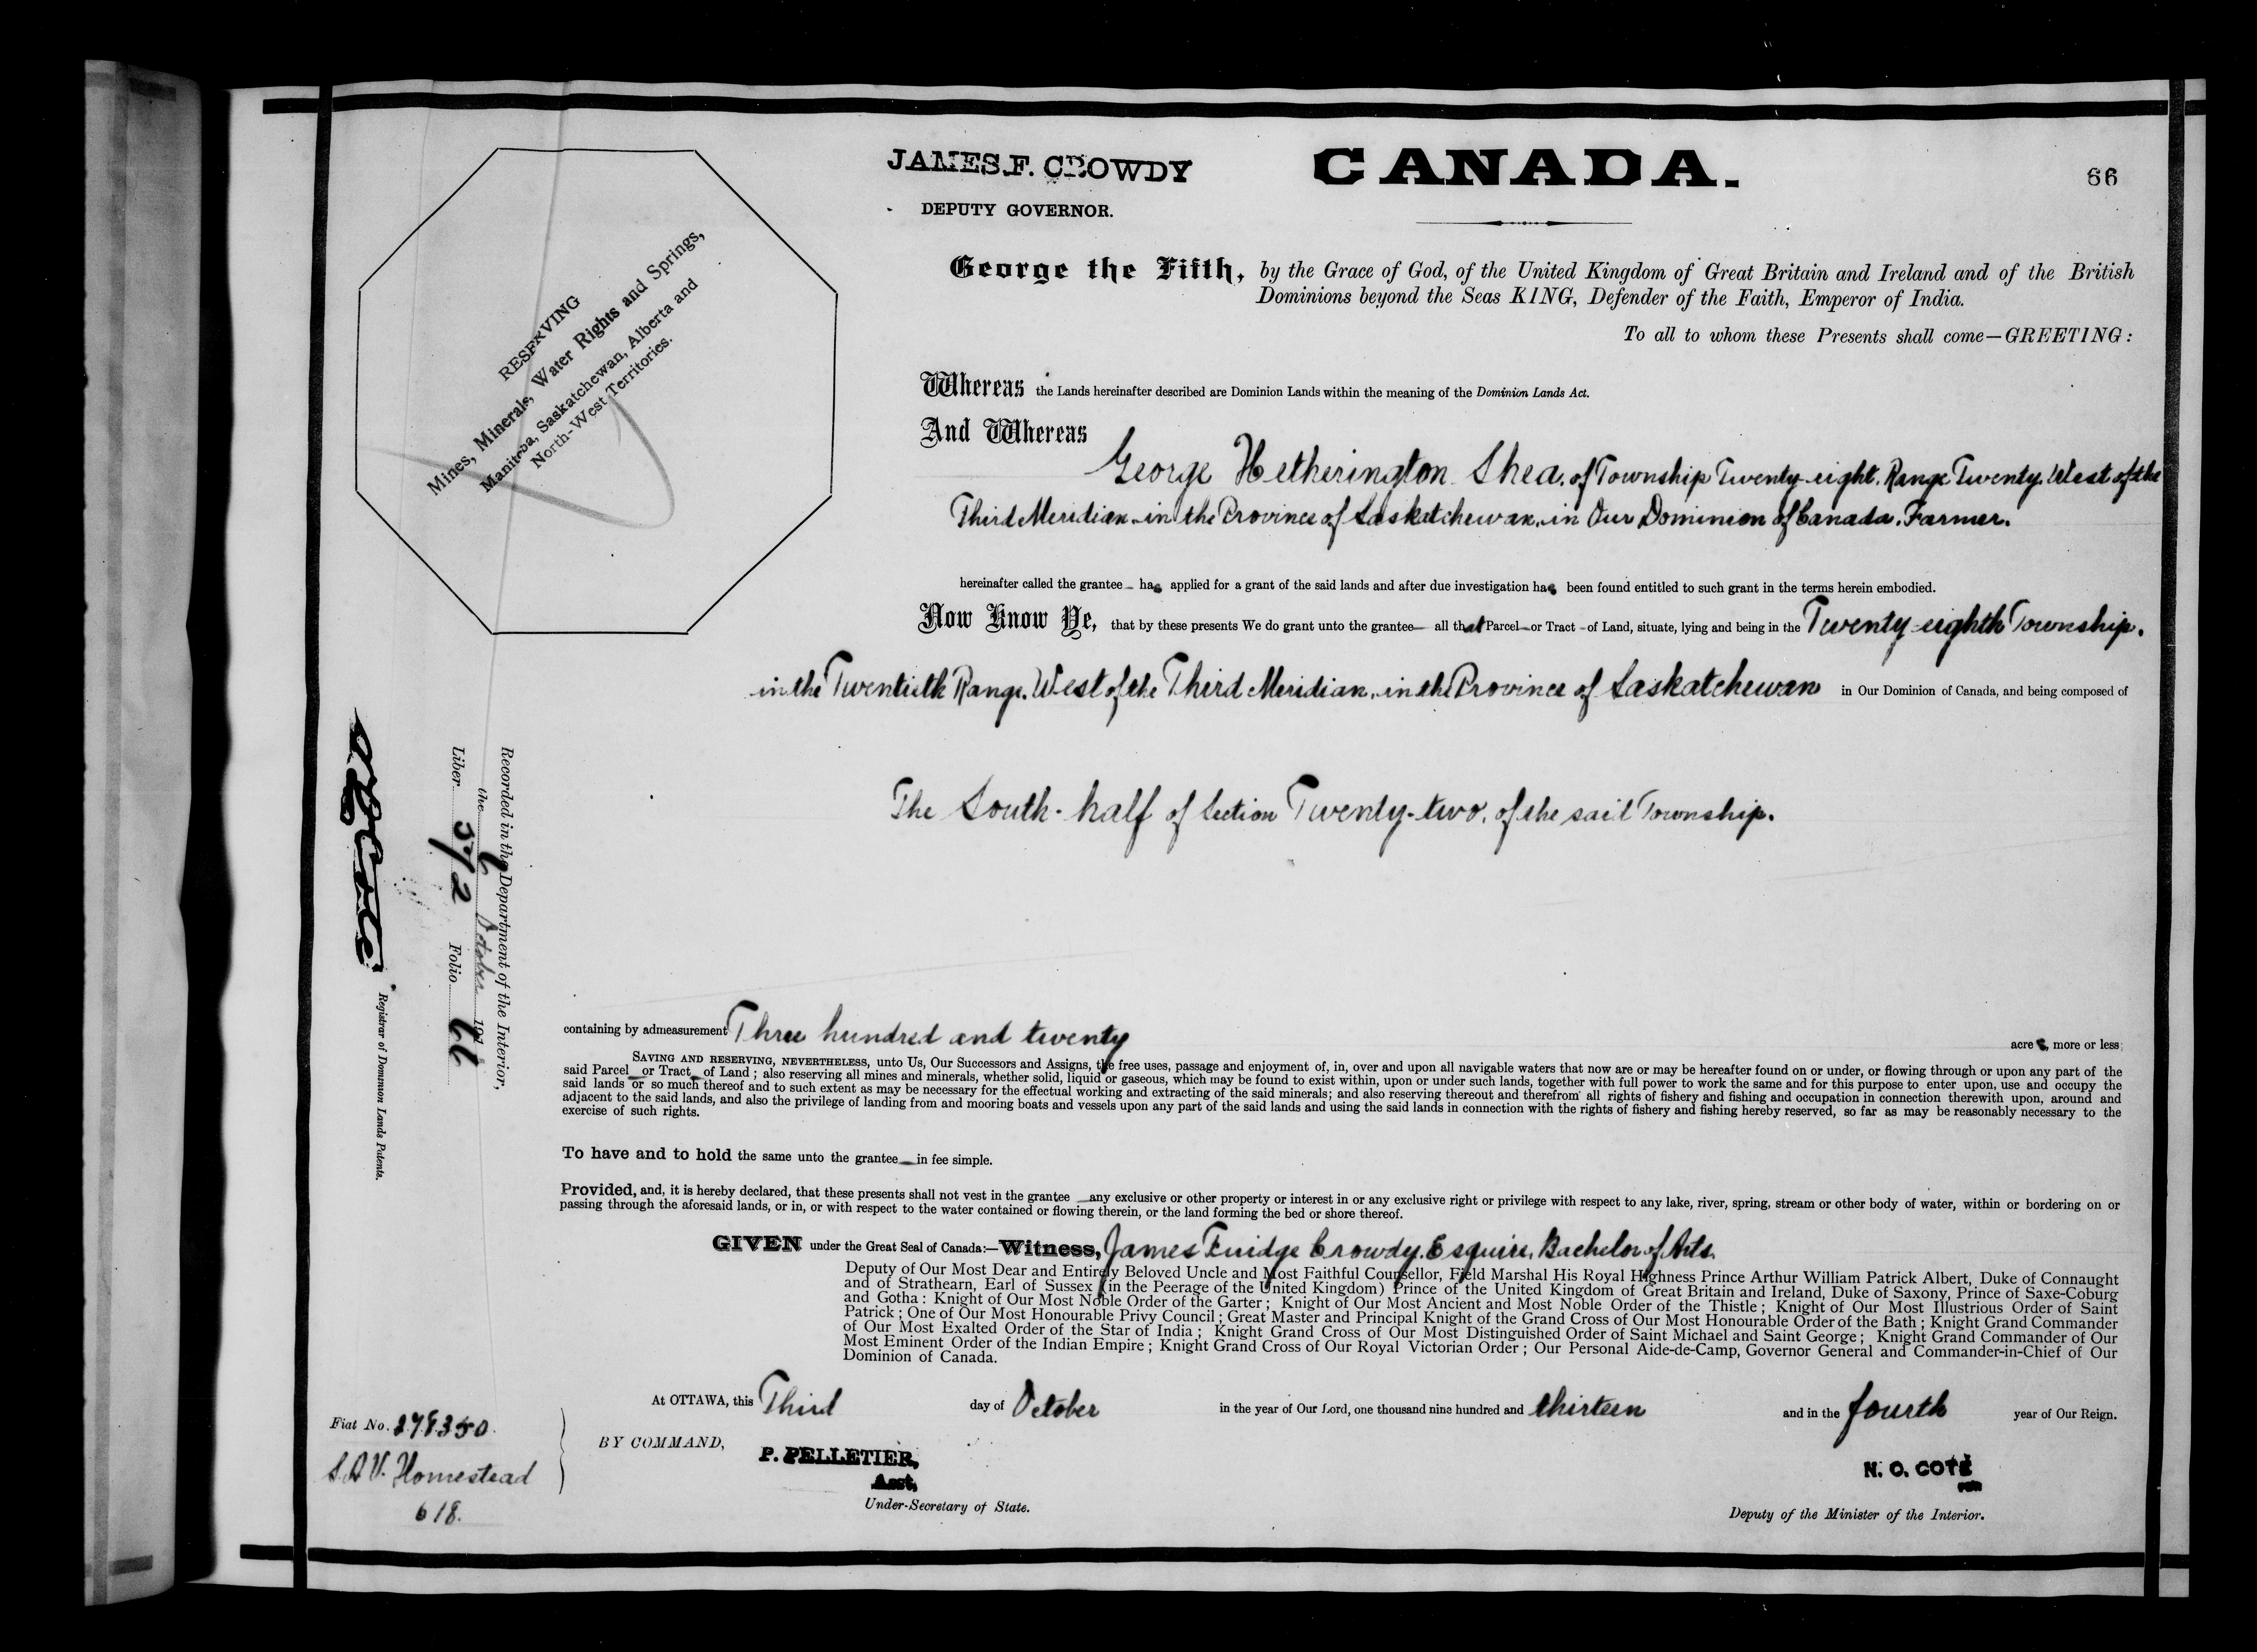 JAMES F. CROWDY
DEPUTY GOVERNOR.
CANADA.
66
RESERVING
Mines, Minerals, Water Rights and Springs,
Manitoba, Saskatchewan, Alberta and
North-West Territories.
George the Fifth, by the Grace of God, of the United Kingdom of Great Britain and Ireland and of the British
Dominions beyond the Seas KING, Defender of the Faith, Emperor of India.
To all to whom these Presents shall come—GREETING:
Whereas the Lands hereinafter described are Dominion Lands within the meaning of the Dominion Lands Act.
And Whereas
George Hetherington Shea, of Township Twenty-eight, Range Twenty, West of the
Third Meridian, in the Province of Saskatchewan, in Our Dominion of Canada, Farmer.
hereinafter called the grantee has applied for a grant of the said lands and after due investigation has been found entitled to such grant in the terms herein embodied.
Now Know Ye, that by these presents We do grant unto the grantee all that Parcel or Tract of Land, situate, lying and being in the Twenty-eighth Township,
in the Twentieth Range, West of the Third Meridian, in the Province of Saskatchewan in Our Dominion of Canada, and being composed of
The South-half of Section Twenty-two, of the said Township.
containing by admeasurement Three hundred and twenty acres, more or less;
SAVING AND RESERVING, NEVERTHELESS, unto Us, Our Successors and Assigns, the free uses, passage and enjoyment of, in, over and upon all navigable waters that now are or may be hereafter found on or under, or flowing through or upon any part of the
said Parcel or Tract of Land; also reserving all mines and minerals, whether solid, liquid or gaseous, which may be found to exist within, upon or under such lands, together with full power to work the same and for this purpose to enter upon, use and occupy the
said lands or so much thereof and to such extent as may be necessary for the effectual working and extracting of the said minerals; and also reserving thereout and therefrom all rights of fishery and fishing and occupation in connection therewith upon, around and
adjacent to the said lands, and also the privilege of landing from and mooring boats and vessels upon any part of the said lands and using the said lands in connection with the rights of fishery and fishing hereby reserved, so far as may be reasonably necessary to the
exercise of such rights.
To have and to hold the same unto the grantee in fee simple.
Provided, and, it is hereby declared, that these presents shall not vest in the grantee any exclusive or other property or interest in or any exclusive right or privilege with respect to any lake, river, spring, stream or other body of water, within or bordering on or
passing through the aforesaid lands, or in, or with respect to the water contained or flowing therein, or the land forming the bed or shore thereof.
GIVEN under the Great Seal of Canada:—Witness, James Fuidge Crowdy, Esquire, Bachelor of Arts,
Deputy of Our Most Dear and Entirely Beloved Uncle and Most Faithful Counsellor, Field Marshal His Royal Highness Prince Arthur William Patrick Albert, Duke of Connaught
and of Strathearn, Earl of Sussex (in the Peerage of the United Kingdom) Prince of the United Kingdom of Great Britain and Ireland, Duke of Saxony, Prince of Saxe-Coburg
and Gotha: Knight of Our Most Noble Order of the Garter; Knight of Our Most Ancient and Most Noble Order of the Thistle; Knight of Our Most Illustrious Order of Saint
Patrick; One of Our Most Honourable Privy Council; Great Master and Principal Knight of the Grand Cross of Our Most Honourable Order of the Bath; Knight Grand Commander
of Our Most Exalted Order of the Star of India; Knight Grand Cross of Our Most Distinguished Order of Saint Michael and Saint George; Knight Grand Commander of Our
Most Eminent Order of the Indian Empire; Knight Grand Cross of Our Royal Victorian Order; Our Personal Aide-de-Camp, Governor General and Commander-in-Chief of Our
Dominion of Canada.
At OTTAWA, this Third day of October in the year of Our Lord, one thousand nine hundred and thirteen and in the fourth year of Our Reign.
BY COMMAND,
P. PELLETIER,
Asst.
Under-Secretary of State.
N. O. COTÉ
Deputy of the Minister of the Interior.
Recorded in the Department of the Interior,
the 6 October 191
Liber 572 Folio 66
N O Coté
Registrar of Dominion Lands Patents.
Fiat No. 278350.
S.A.V. Homestead
618.